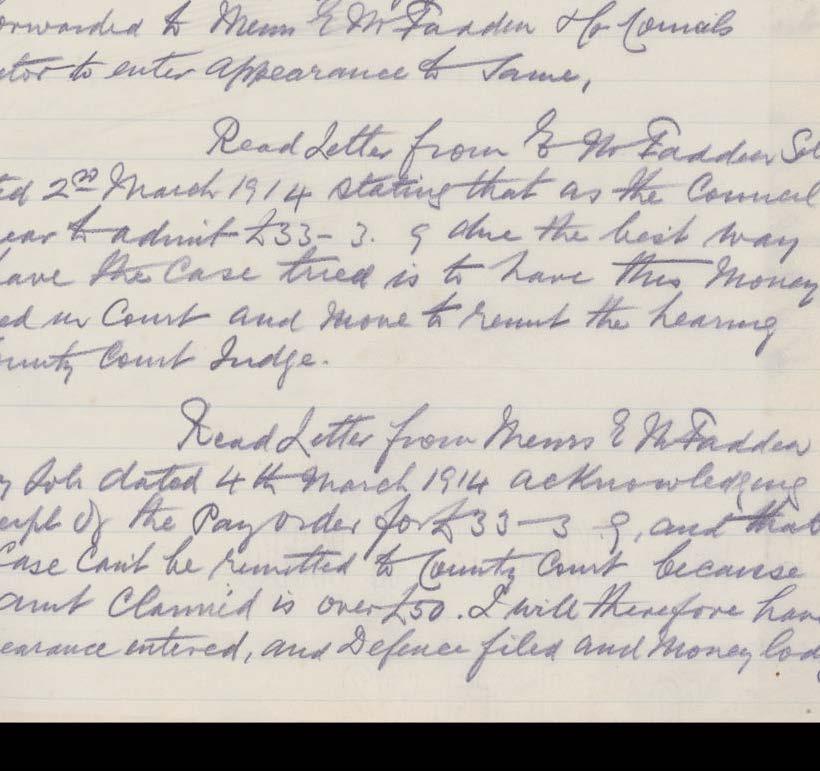 orwarded to Messrs E McFadden & Co Councils
itor to enter appearance to same,
Read Letter from E McFadden Sol
ted 2nd March 1914 stating that as the Council
ear to admit £33-3. 9 due the best way
have the Case tried is to have this Money
ed in Court and move to remit the hearing
ounty Court Judge.
Read Letter from Messrs E McFadden
y Sols dated 4th March 1914 acknowledging
eipt of the Pay order for £33-3 9, and that
Case Can't be remitted to County Court because
amt Claimed is over £50. I will therefore have
earance entered, and Defence filed and Money lod